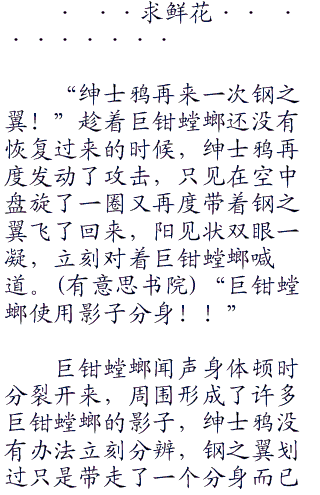 · · ·求鲜花· · ·
· · · · · · ·
“绅士鸦再来一次钢之
翼！”趁着巨钳螳螂还没有
恢复过来的时候，绅士鸦再
度发动了攻击，只见在空中
盘旋了一圈又再度带着钢之
翼飞了回来，阳见状双眼一
凝，立刻对着巨钳螳螂喊
道。(有意思书院)“巨钳螳
螂使用影子分身！！”
巨钳螳螂闻声身体顿时
分裂开来，周围形成了许多
巨钳螳螂的影子，绅士鸦没
有办法立刻分辨，钢之翼划
过只是带走了一个分身而已